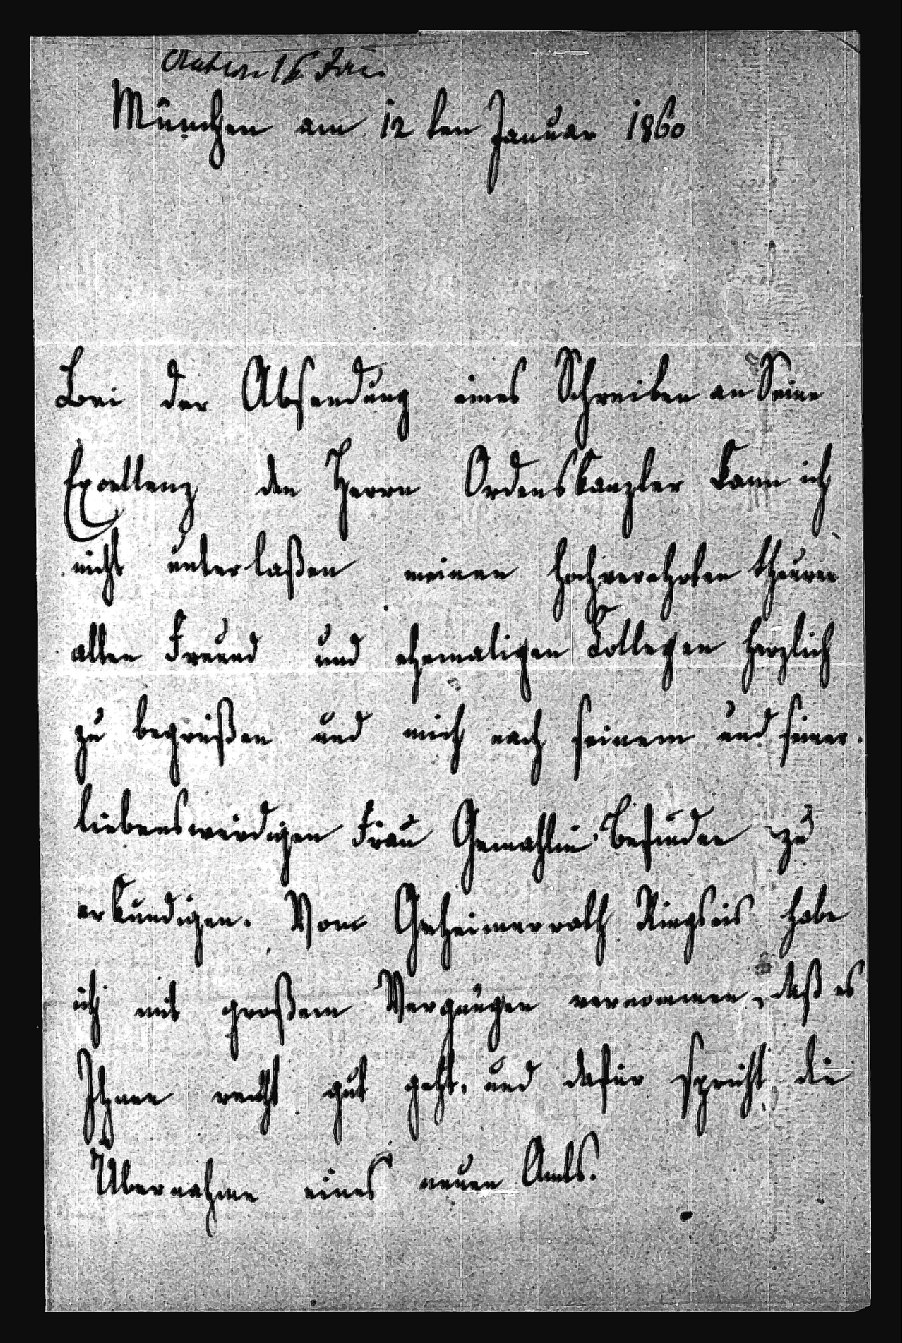 16 Jan.
München am 12 ten Januar 1860
Bei der Absendung eines Schreiben an Seine
Excellenz den Herrn Ordenskanzler kann ich
nicht unterlaßen meinen hochverehrten theuren
alten Freund und ehemaligen Collegen herzlich
zu begrüßen und mich nach seinem und seiner
liebenswürdigen Frau Gemahlin Befinden zu
erkundigen. Vom Geheimerrath Ringseis habe
ich mit großem Vergnügen vernommen, daß es
Ihnen recht gut geht, und dafür spricht die
Übernahme eines neuen Amts.